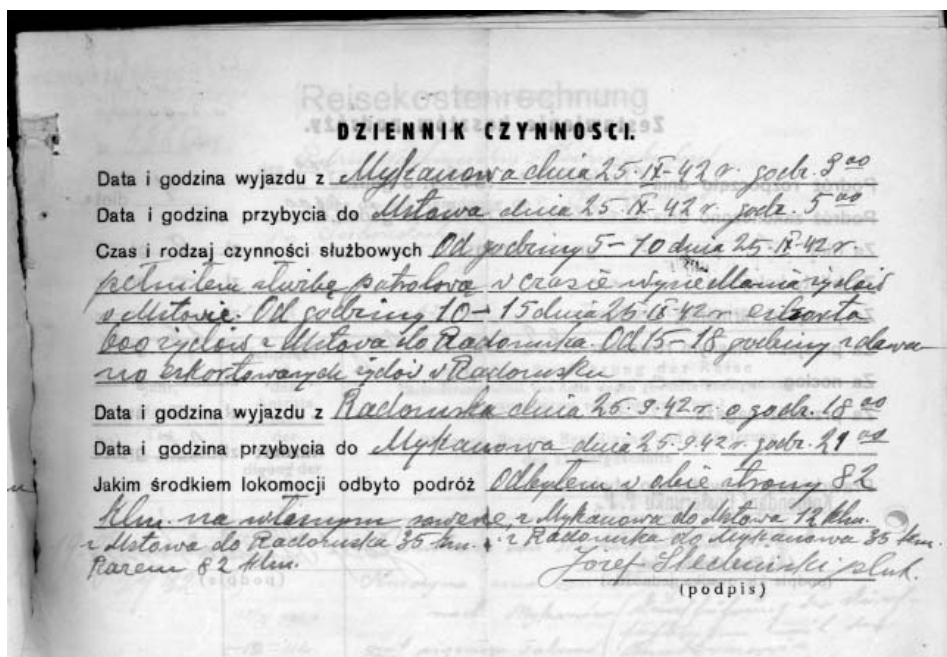 Reisekostenrechnung
DZIENNIK CZYNNOSCI.
Data i godzina wyjazdu z Mykanowa dnia 25.IX-42 r. godz. 3 00
Data i godzina przybycia do Mstowa dnia 25 IX 42 r. godz. 5 00
Czas i rodzaj czynności służbowych Od godziny 5-10 dnia 25.IX-42 r
pełniłem służbę patrolową w czasie wysiedlania żydów
w Mstowie. Od godziny 10-15 dnia 25-IX-42 r eskorta
600 żydów z Mstowa do Radomska. Od 15-18 godziny zdawa-
no eskortowanych żydów w Radomsku
Data i godzina wyjazdu z Radomska dnia 25.9.42 r. o godz. 18 00
Data i godzina przybycia do Mykanowa dnia 25.9.42 r. godz. 21 00
Jakim środkiem lokomocji odbyto podróż Odbyłem w obie strony 82
klm. na własnym rowerze, z Mykanowa do Mstowa 12 klm.
z Mstowa do Radomska 35 km. z Radomska do Mykanowa 35 km.
Razem 82 klm. Józef
(podpis)